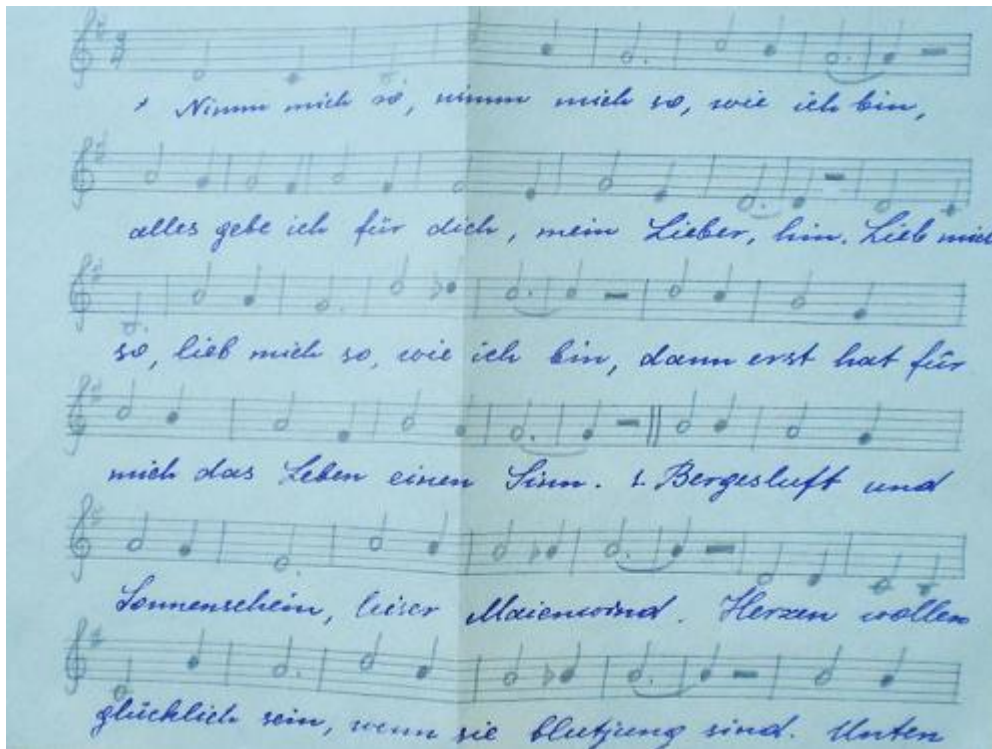 Nimm mich so, nimm mich so, wie ich bin,
alles gebe ich für dich, mein Lieber, hin. Lieb mich
so, lieb mich so, wie ich bin, dann erst hat für
mich das Leben einen Sinn. 1. Bergesluft und
Sonnenschein, leiser Maienwind. Herzen wollen
glücklich sein, wenn sie blutjung sind. Unten